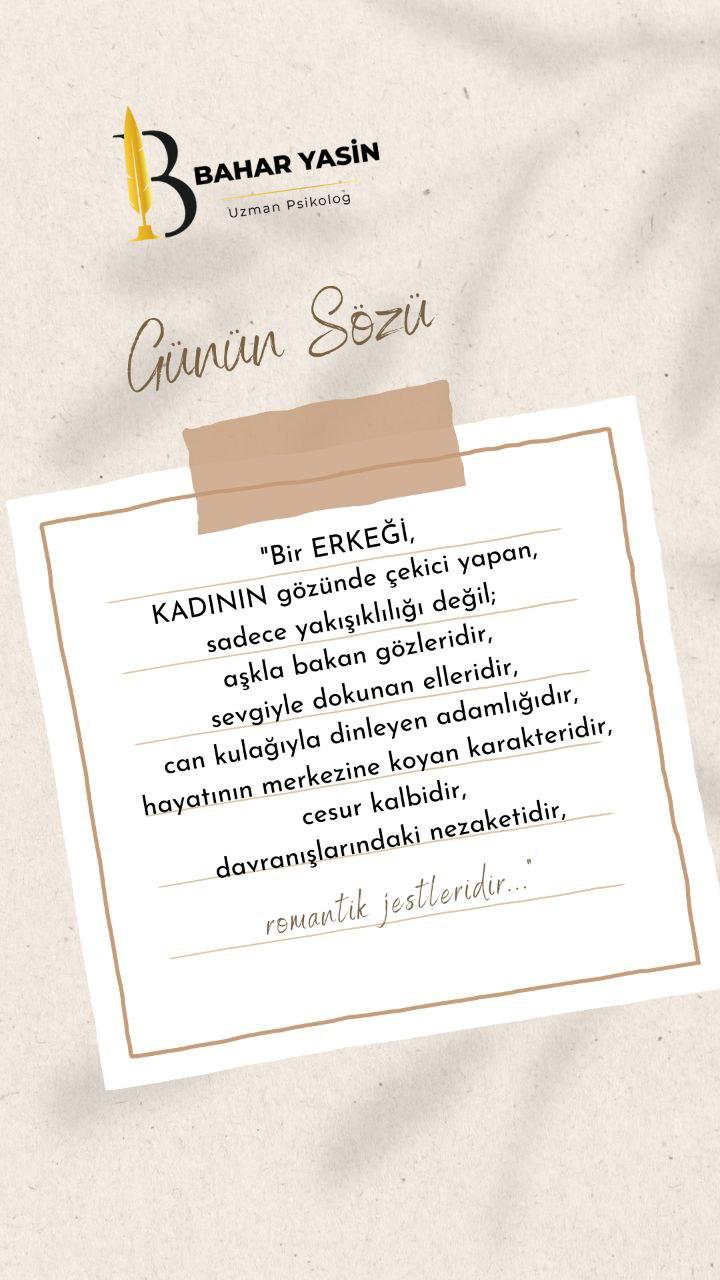 B
BAHAR YASİN
Uzman Psikolog
Günün Sözü
"Bir ERKEĞİ,
KADININ gözünde çekici yapan,
sadece yakışıklılığı değil;
aşkla bakan gözleridir,
sevgiyle dokunan elleridir,
can kulağıyla dinleyen adamlığıdır,
hayatının merkezine koyan karakteridir,
cesur kalbidir,
davranışlarındaki nezaketidir,
romantik jestleridir..."